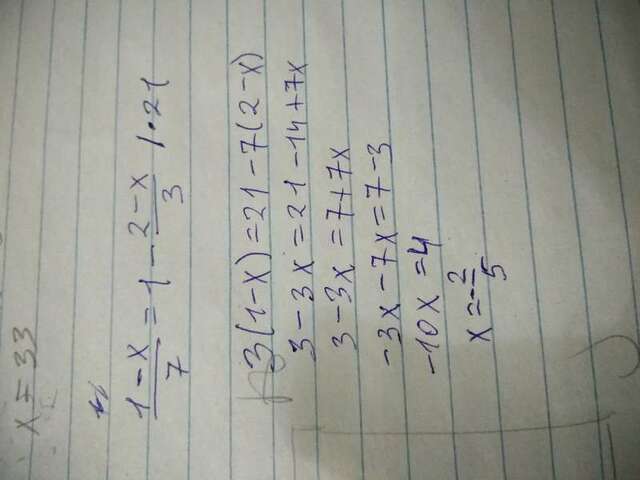 x = 33
1-x/7 = 1 - 2-x/3 /•21
3(1-x)=21-7(2-x)
3-3x=21-14+7x
3-3x=7+7x
-3x-7x=7-3
-10x=4
x=-2/5